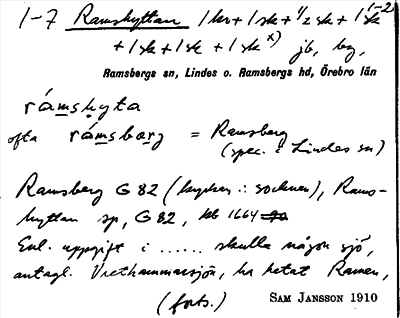 1-7 Ramshyttan 1 kr + 1 sk + 1/2 sk + 1 sk 1-2)
+ 1 sk + 1 sk + 1 sk x) jb, by,
Ramsbergs sn, Lindes o. Ramsbergs hd, Örebro län
rámshyta
ofta rámsbarg = Ramsberg
(spec. i Lindes sn)
Ramsberg G 82 (kyrkan i socknen), Rams-
hyttan sp, G 82, kb 1664
Enl. uppgift i ...... skulle någon sjö,
antagl. Vrethammarsjön, ha hetat Ramen,
(forts.) SAM JANSSON 1910